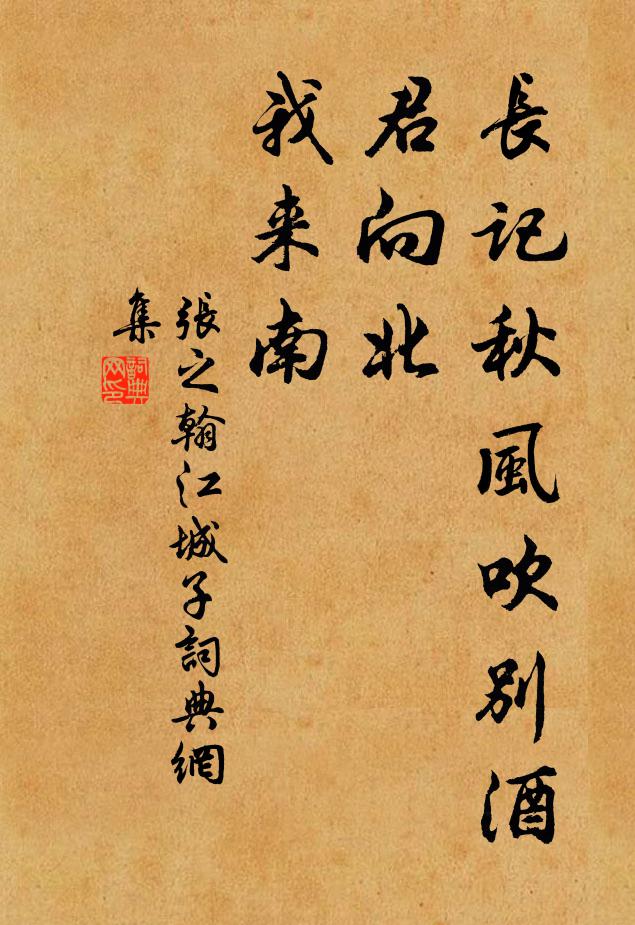 長记秋風吹别酒
君向北
我来南
張之翰江城子詞典網
集
詞典网印